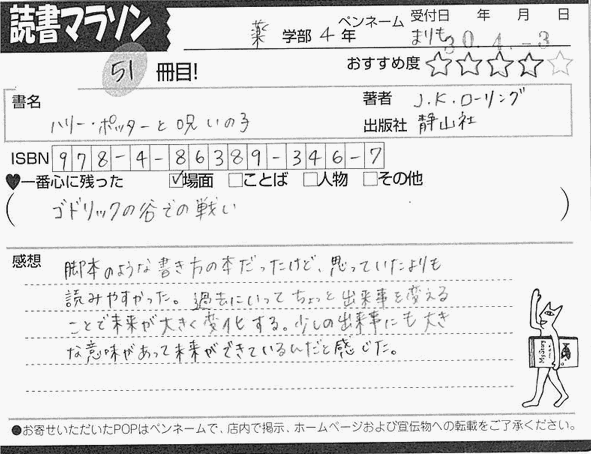 読書マラソン
薬 学部 4 年
ペンネーム まりも
受付日 年 月 日
30. 4. -3
51 冊目!
おすすめ度 ☆☆☆☆☆
書名
ハリー・ポッターと呪いの子
著者 J.K.ローリング
出版社 静山社
ISBN 978-4-86389-346-7
♥一番心に残った ☑場面 □ことば □人物 □その他
(ゴドリックの谷での戦い)
感想
脚本のような書き方の本だったけど、思っていたよりも
読みやすかった。過去にいってちょっと出来事を変える
ことで未来が大きく変化する。少しの出来事にも大き
な意味があって未来ができているんだと感じた。
●お寄せいただいたPOPはペンネームで、店内で掲示、ホームページおよび宣伝物への転載をご了承ください。